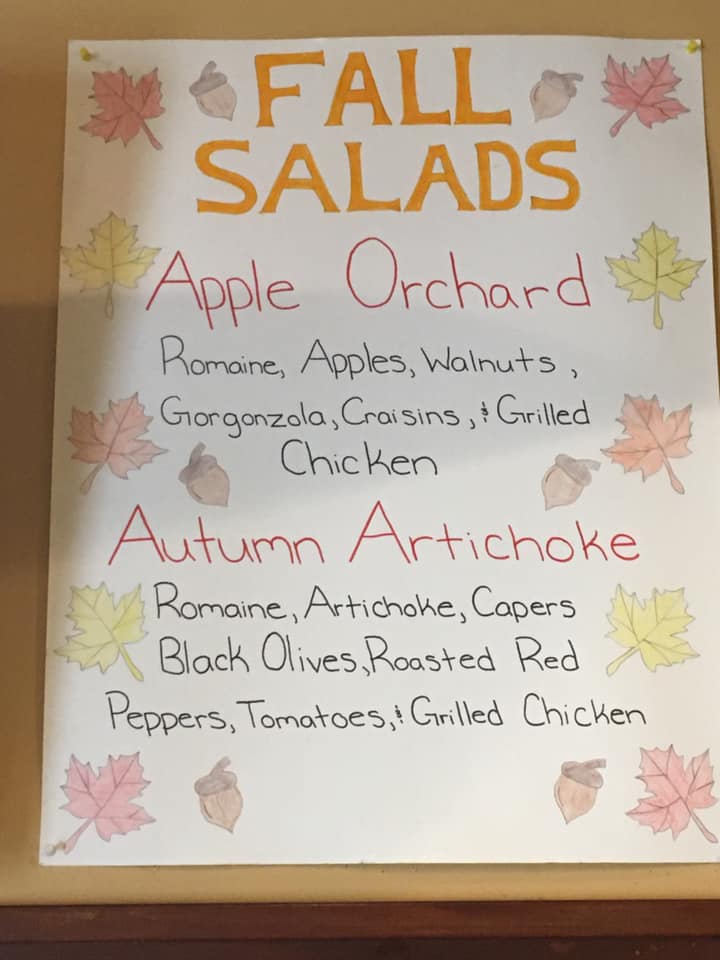 FALL
SALADS
Apple Orchard
Romaine, Apples, Walnuts,
Gorgonzola, Craisins, & Grilled
Chicken
Autumn Artichoke
Romaine, Artichoke, Capers
Black Olives, Roasted Red
Peppers, Tomatoes, & Grilled Chicken